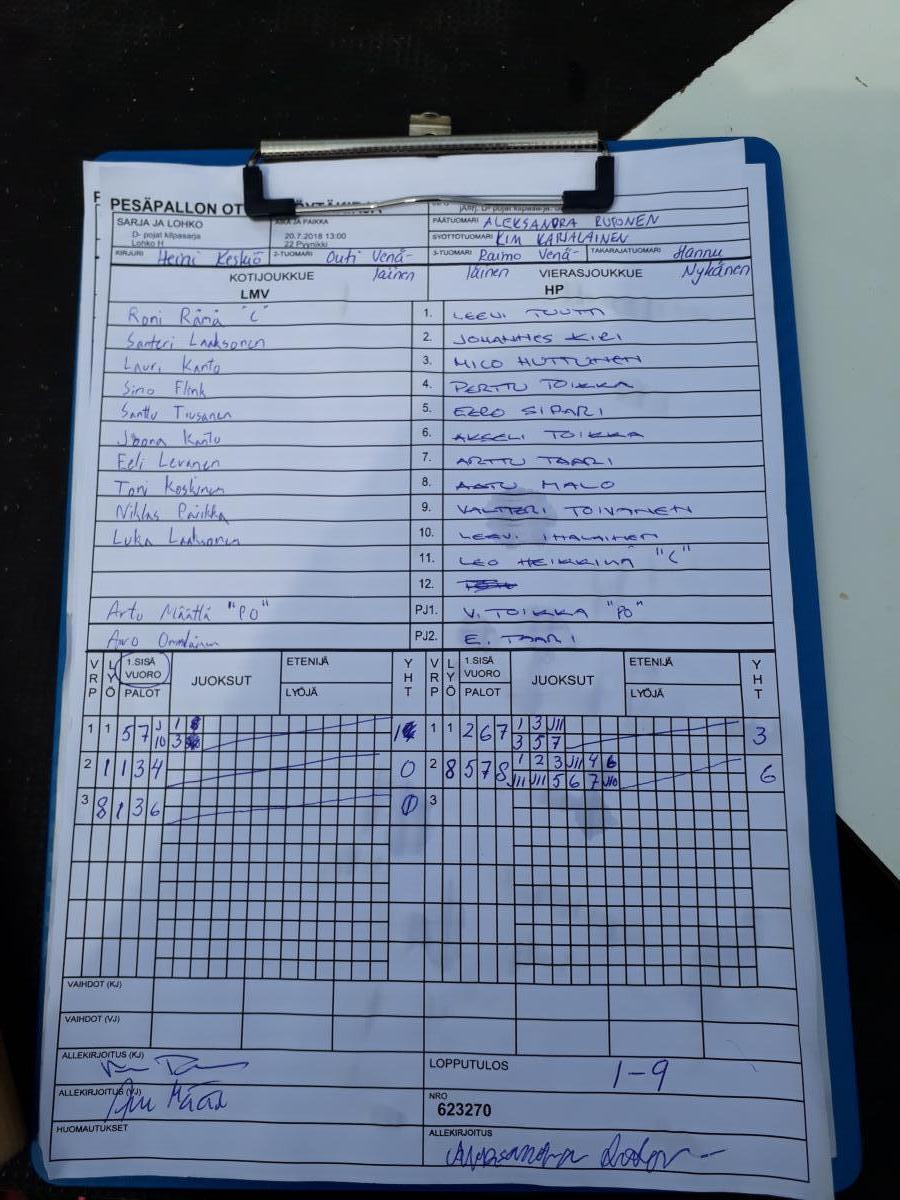 PESÄPALLON OT
SARJA JA LOHKO
D- pojat kilpasarja
Lohko H
AIKA JA PAIKKA
20.7.2018 13:00
22 Pyynikki
PÄÄTUOMARI ALEKSANDRA RUPONEN
SYÖTTÖTUOMARI KIM KARJALAINEN
KIRJURI Heini Keskiö 2-TUOMARI Outi Venä-
läinen
3-TUOMARI Raimo Venä-
läinen
TAKARAJATUOMARI Hannu
Nykänen
KOTIJOUKKUE
LMV
VIERASJOUKKUE
HP
Roni Rämä "C" 1. LEEVI TUUTTI
Santeri Laaksonen 2. JOHANNES KIRI
Lauri Kanto 3. MICO HUTTUNEN
Simo Flink 4. PERTTU TOIKKA
Santtu Tiusanen 5. EERO SIPARI
Joona Kanto 6. AKSELI TOIKKA
Eeli Levanen 7. ARTTU TAARI
Toni Koskinen 8. AATU MALO
Niklas Parikka 9. VALTTERI TOIVANEN
Luka Laaksonen 10. LEEVI IHALAINEN
11. LEO HEIKKINÄ "C"
12.
Arto Määttä "PO" PJ1. V. TOIKKA "PO"
PJ2. E. TAARI
VRP LYÖ 1.SISÄ VUORO PALOT JUOKSUT ETENIJÄ LYÖJÄ YHT VRP LYÖ 1.SISÄ VUORO PALOT JUOKSUT ETENIJÄ LYÖJÄ YHT
1 1 5 7 J10 1 1 1 1 2 6 7 1 3 JII 3
3 3 5 7
2 1 1 3 4 0 2 8 5 7 8 1 2 3 JII 4 6 6
JII JII 5 6 7 J10
3 8 1 3 6 0 3
VAIHDOT (KJ)
VAIHDOT (VJ)
ALLEKIRJOITUS (KJ)
LOPPUTULOS 1-9
ALLEKIRJOITUS (VJ)
NRO
623270
HUOMAUTUKSET
ALLEKIRJOITUS